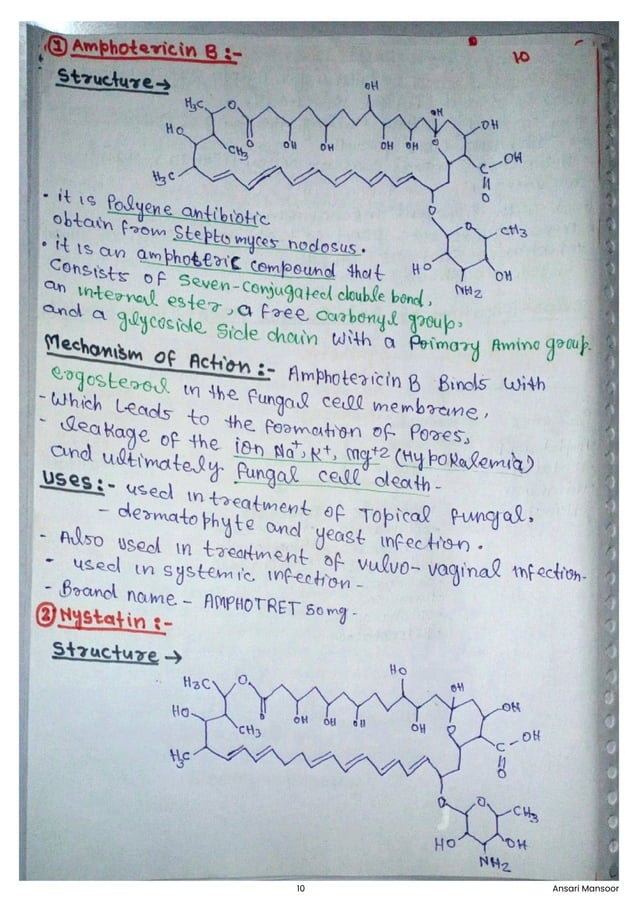 ① Amphotericin B :-
10
Structure →
OH
H₃C
O
OH
HO
OH
CH₃
O
OH
OH
OH
OH
O
H₃C
C-OH
O
O
O
CH₃
HO
OH
NH₂
• it is Polyene antibiotic
obtain from Steptomyces nodosus.
• it is an amphoteric compound that
Consists of Seven-Conjugated double bond,
an internal ester, a free Carbonyl group,
and a glycoside side chain with a Primary Amino group.
Mechanism of Action :- Amphotericin B Binds with
ergosterol in the fungal cell membrane,
- Which Leads to the formation of Pores,
- leakage of the ion Na⁺, K⁺, mg⁺² (Hypokalemia)
and ultimately fungal cell death -
Uses :- used in treatment of Topical fungal,
- dermatophyte and yeast infection.
- Also used in treatment of vulvo-vaginal infection-
- used in systemic infection -
- Brand name - AMPHOTRET 50mg-
② Nystatin :-
Structure →
HO
H₃C
O
OH
OH
HO
O
OH
OH
OH
OH
CH₃
O
C-OH
H₃C
O
O
O
CH₃
HO
OH
NH₂
10
Ansari Mansoor